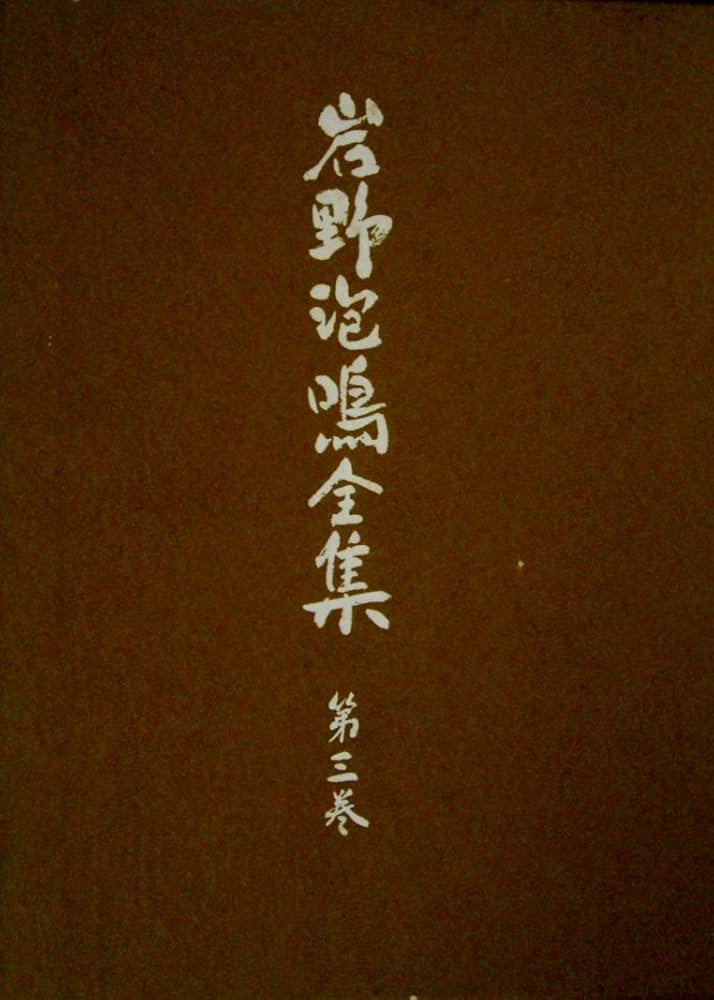 岩野泡鳴全集
第三巻